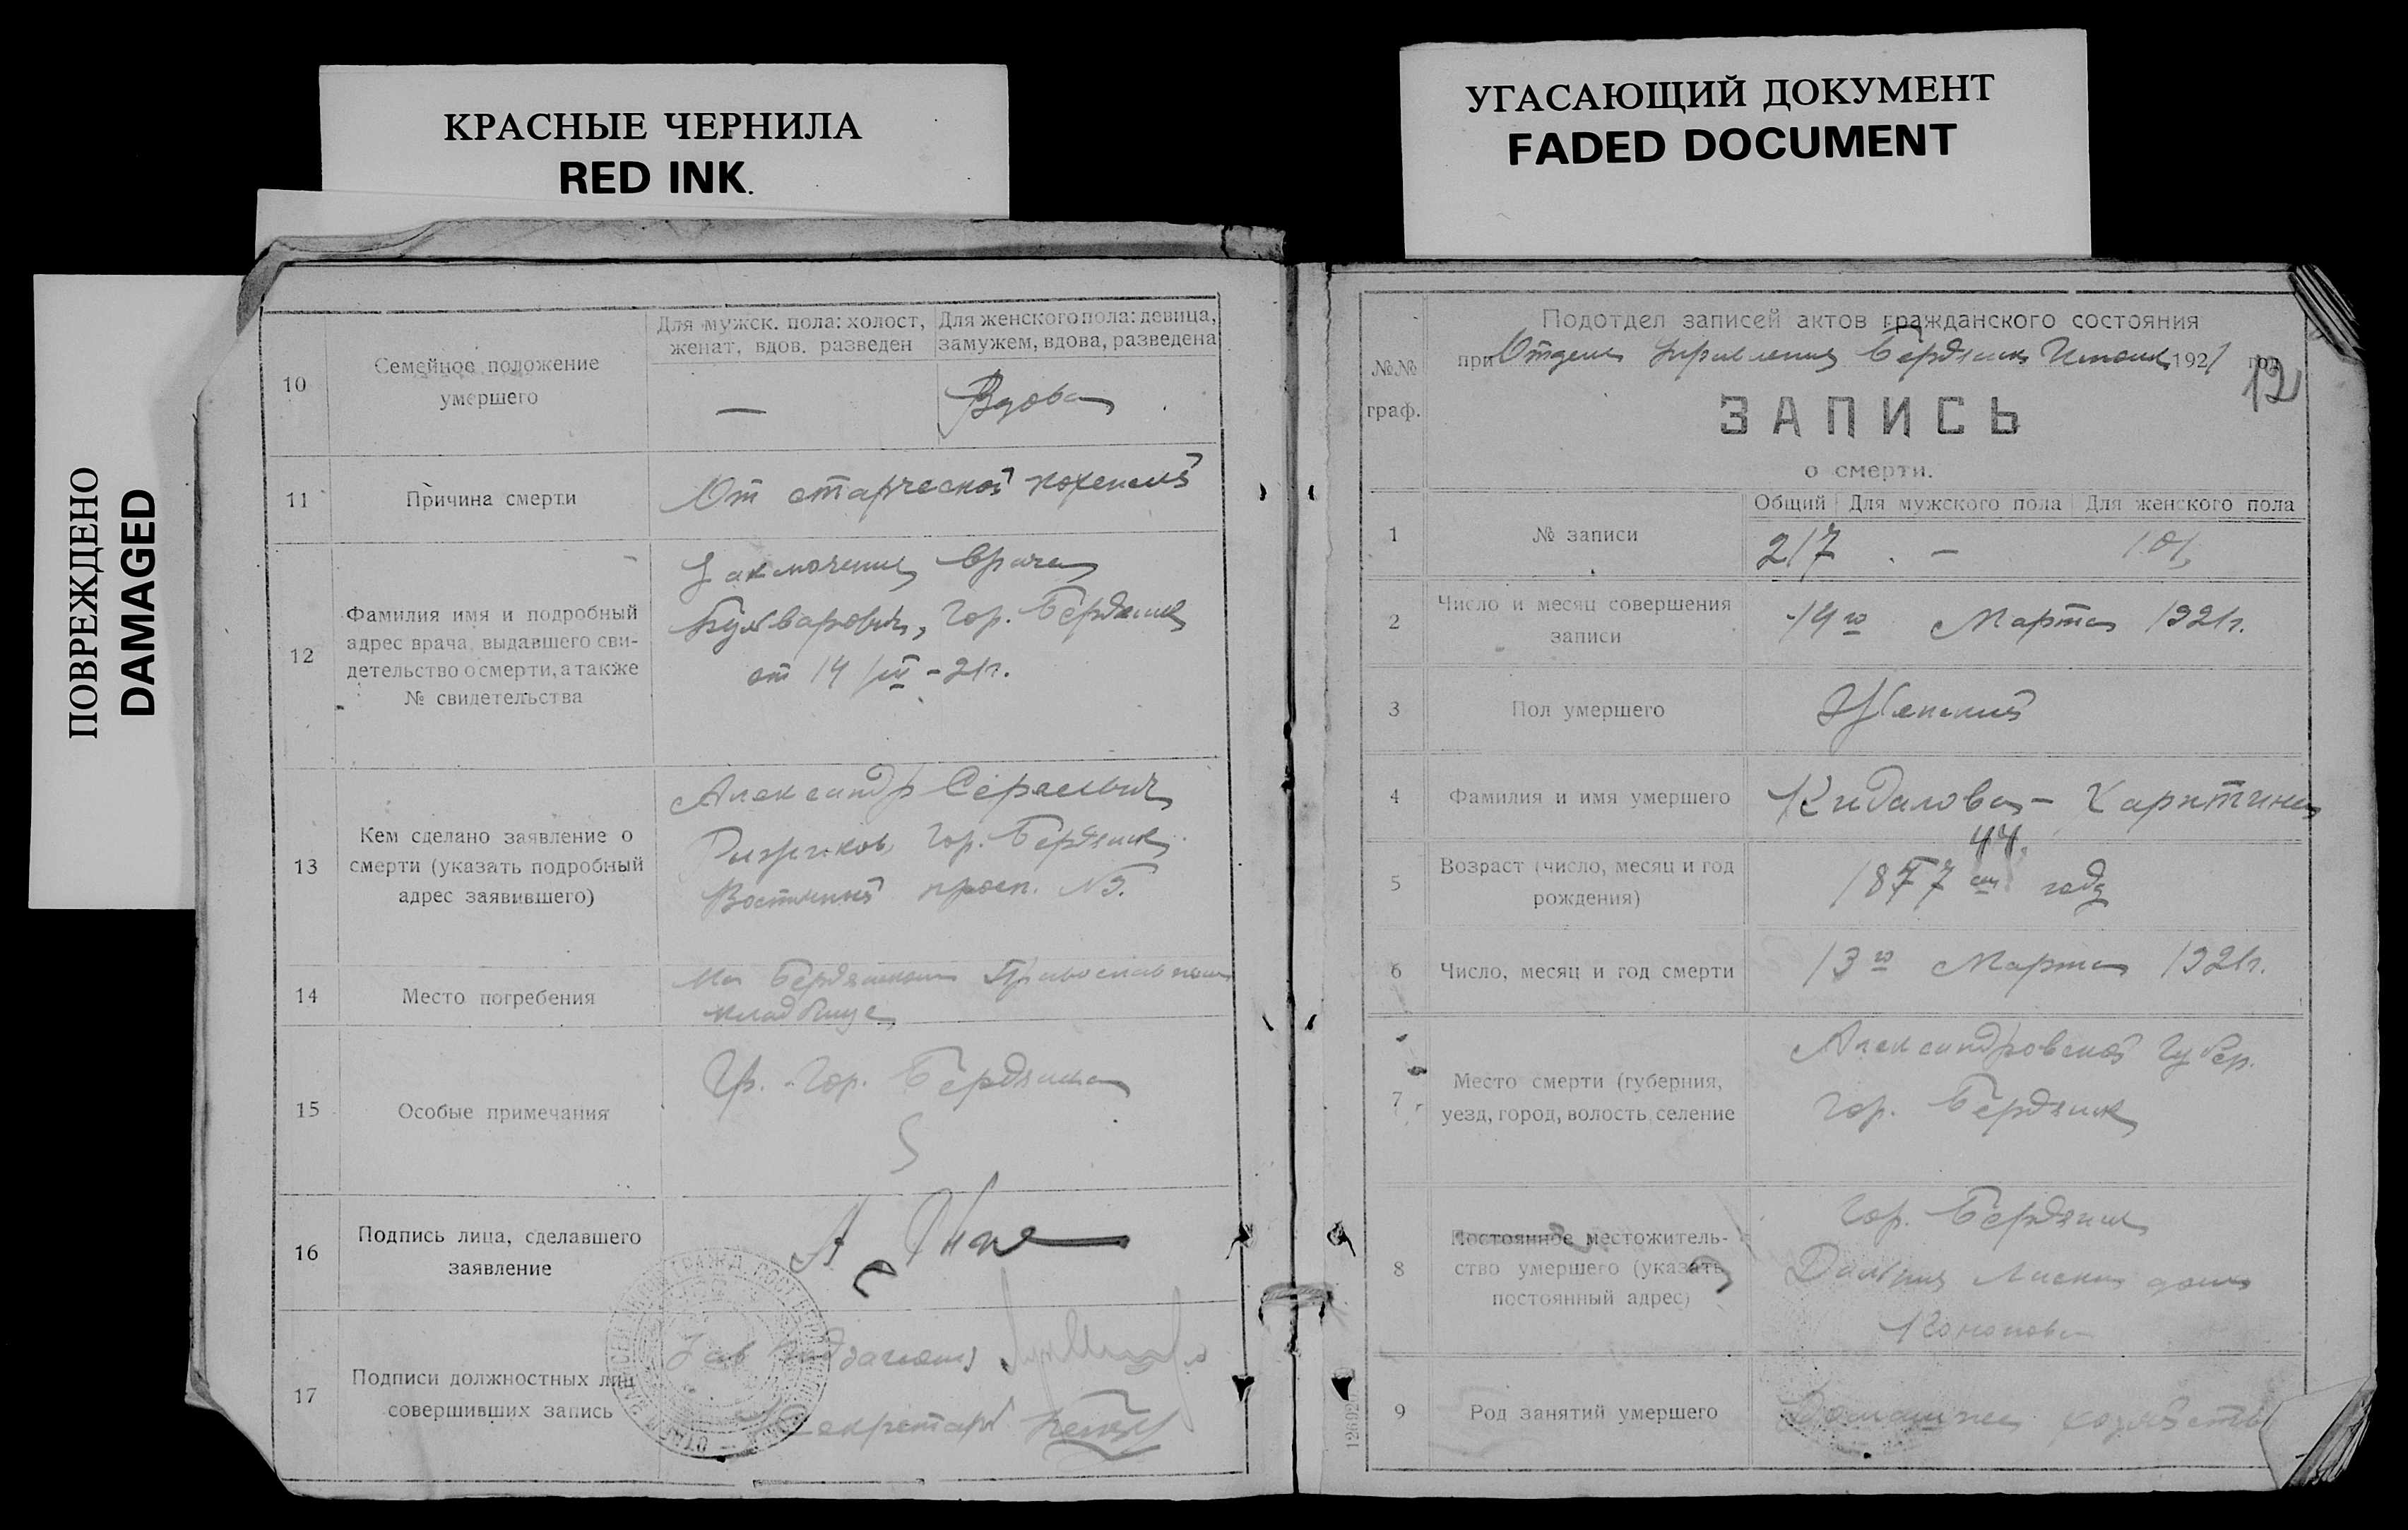 КРАСНЫЕ ЧЕРНИЛА
RED INK.
УГАСАЮЩИЙ ДОКУМЕНТ
FADED DOCUMENT
ПОВРЕЖДЕНО
DAMAGED
10
Семейное положение
умершего
Для мужск. пола: холост,
женат, вдов. разведен
Для женского пола: девица,
замужем, вдова, разведена
—
Вдова
11
Причина смерти
От старческой
12
Фамилия имя и подробный
адрес врача, выдавшего сви-
детельство о смерти, а также
№ свидетельства
Заключение врача
гор. Бердянск
от 14/III - 21г.
13
Кем сделано заявление о
смерти (указать подробный
адрес заявившего)
Александр Сергеевич
гор. Бердянск
14
Место погребения
На Бердянском Православном
кладбище
15
Особые примечания
Гр. гор. Бердянска
16
Подпись лица, сделавшего
заявление
17
Подписи должностных лиц
совершивших запись
Зав подотделом
Секретарь
№№
граф.
Подотдел записей актов гражданского состояния
при Отделе Управления Бердянск 1921 год
12
ЗАПИСЬ
о смерти.
1
№ записи
Общий
Для мужского пола
Для женского пола
217
—
101
2
Число и месяц совершения
записи
14го Марта 1921г.
3
Пол умершего
Женский
4
Фамилия и имя умершего
Кидалова - Харитина
44
5
Возраст (число, месяц и год
рождения)
1877 году
6
Число, месяц и год смерти
13го Марта 1921г.
7
Место смерти (губерния,
уезд, город, волость, селение
Александровской Губер.
гор. Бердянск
8
Постоянное местожитель-
ство умершего (указать
постоянный адрес)
гор. Бердянск
дом
9
Род занятий умершего
Домашнее хозяйство
12692